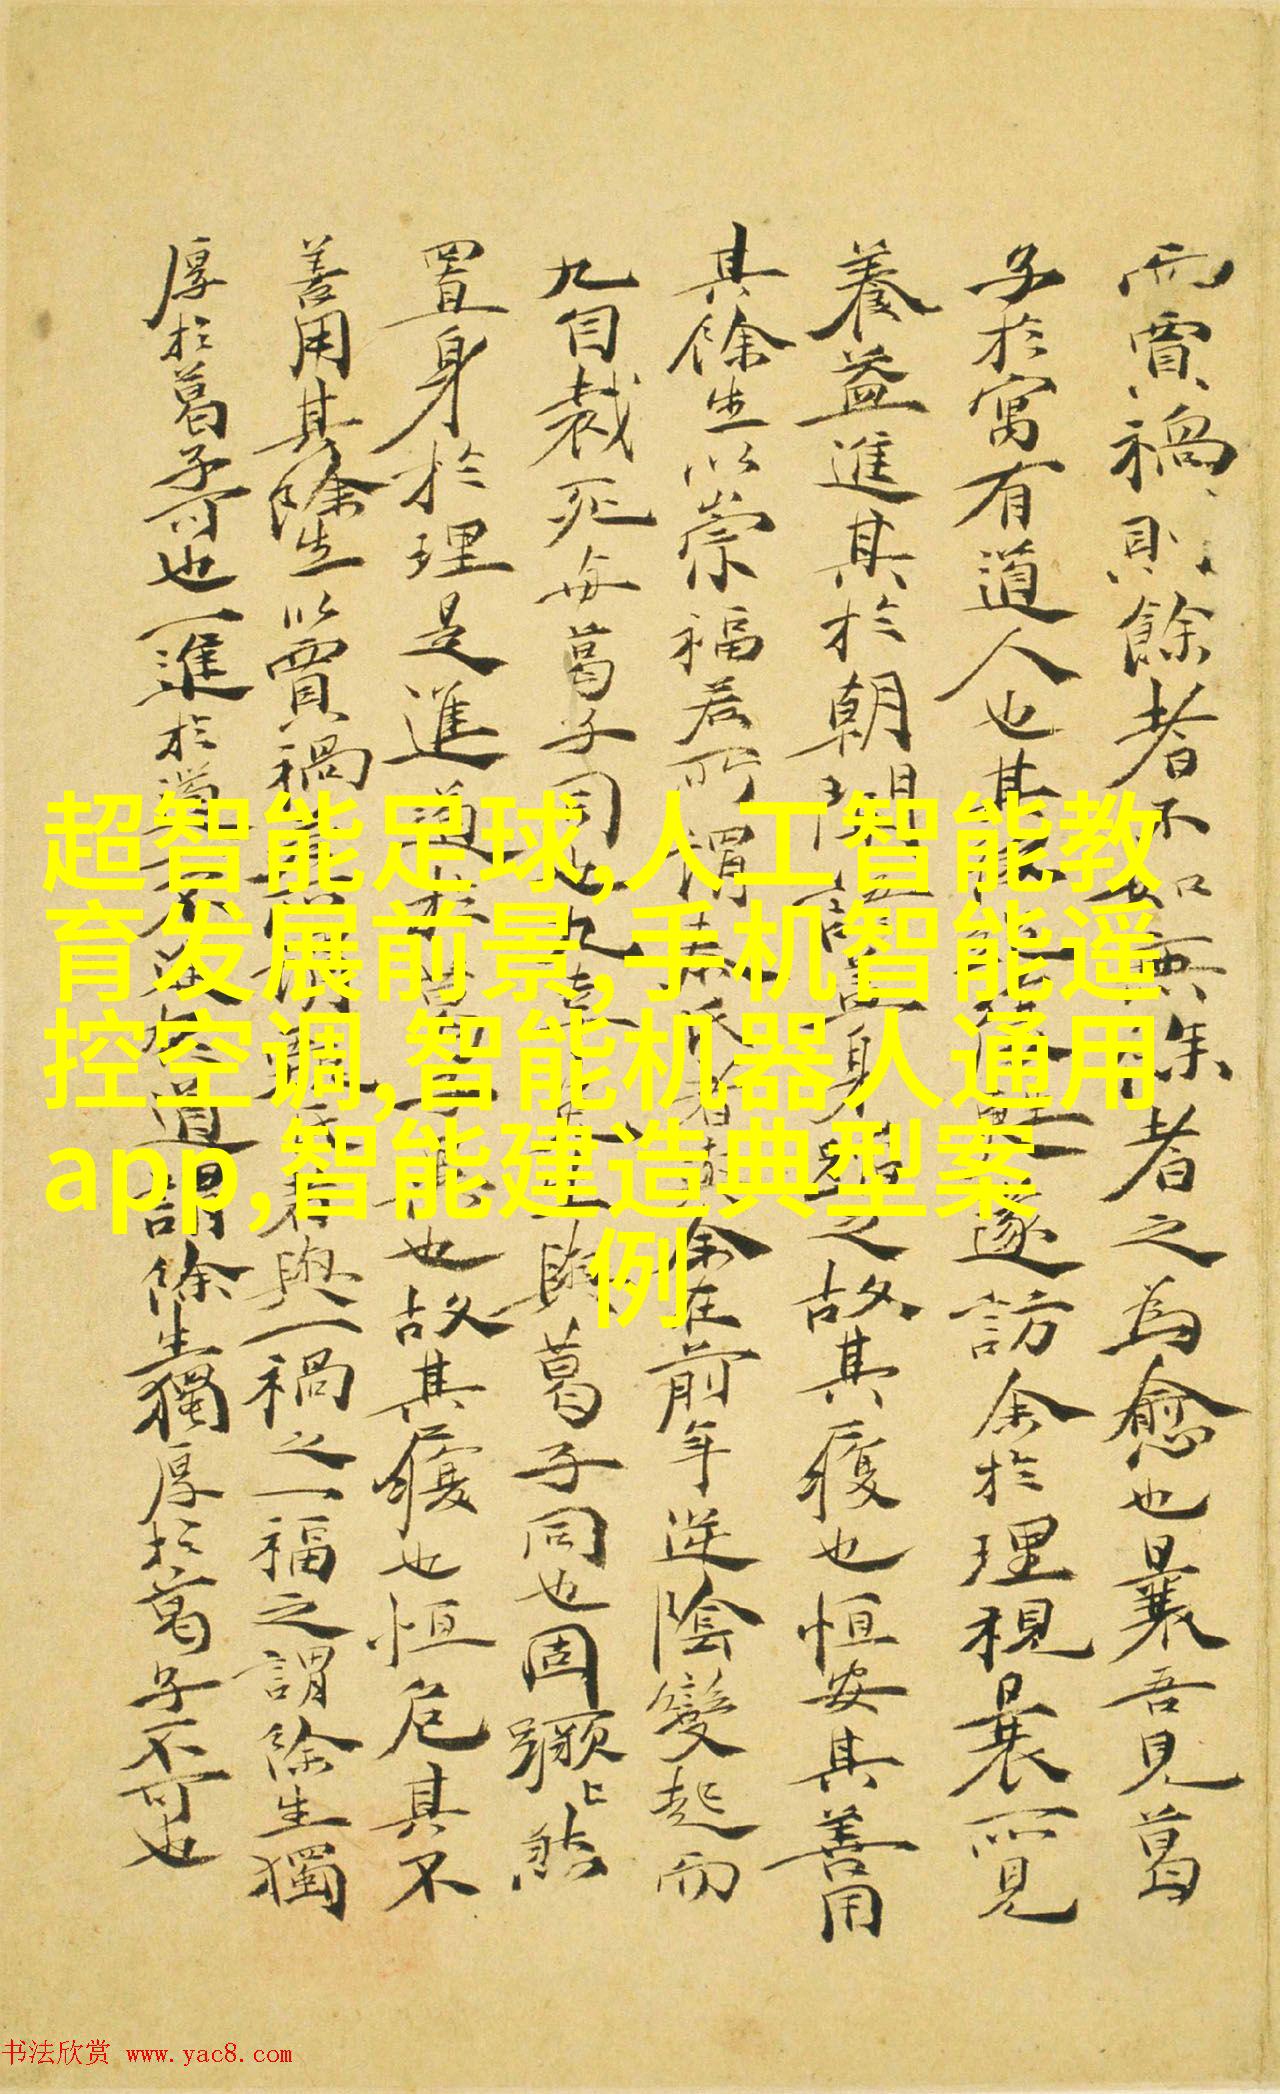 而賈禍則餘者不如無餘者之為愈也曩吾見葛
子於寓有道人也其
養益進其於朝
其餘生以崇福若所謂
九自裁死每葛子同
置身於理是進道於
善用其餘生以賈禍
厚於葛子可也一進於道
遂訪余於理視曩所見
之故其履也恒安其善用
余在前年逆陰變起而
與葛子同也固
也故其履也恒危其不
者與一禍之一福之謂餘生獨
道謂餘生獨厚於葛子不可也
超智能足球,人工智能教
育发展前景,手机智能遥
控空调,智能机器人通用
app,智能建造典型案
例
书法欣赏 www.yac8.com